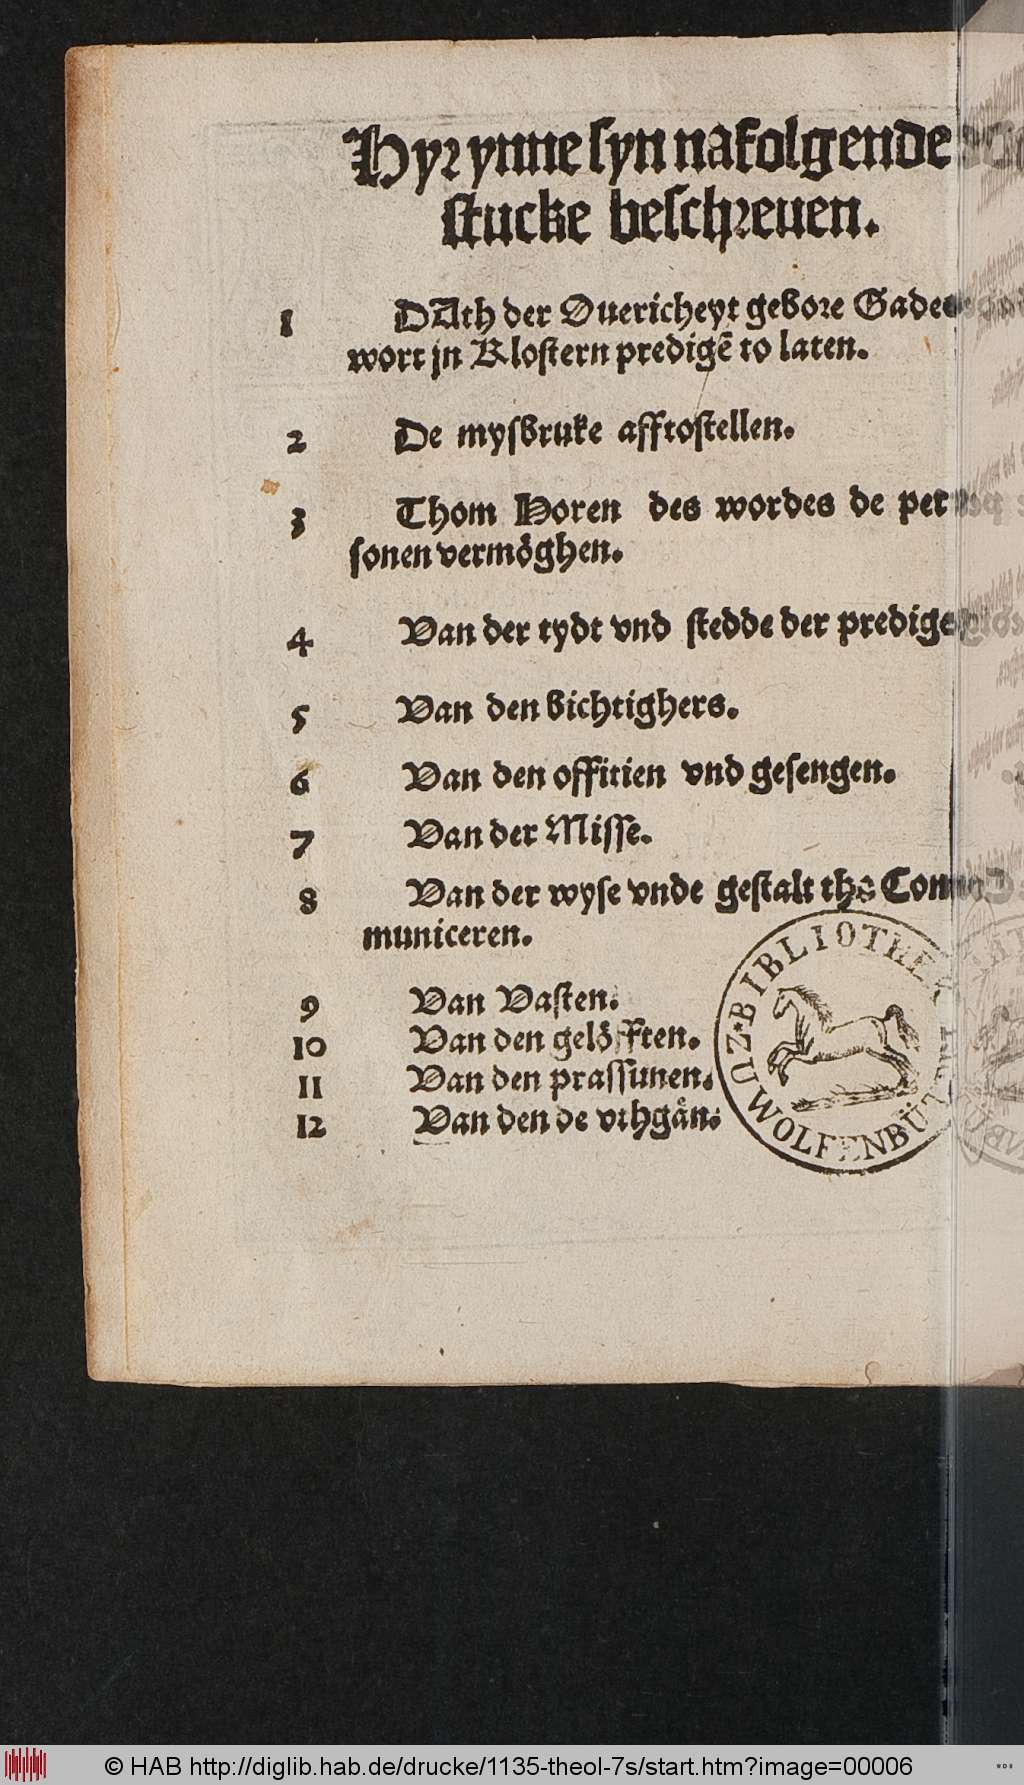 Hyrynne syn nafolgende
stucke beschreuen.
1 DAth der Ouericheyt gebore Gades
wort jn Klostern predigē to laten.
2 De mysbruke afftostellen.
3 Thom Horen des wordes de per
sonen vermöghen.
4 Van der tydt vnd stedde der predige
5 Van den bichtighers.
6 Van den offitien vnd gesengen.
7 Van der Misse.
8 Van der wyse vnde gestalt tho Com
municeren.
9 Van Vasten.
10 Van den gelöfften.
11 Van den prassunen.
12 Van den de vthgån.
BIBLIOTHEK ZU WOLFENBÜTTEL
© HAB http://diglib.hab.de/drucke/1135-theol-7s/start.htm?image=00006